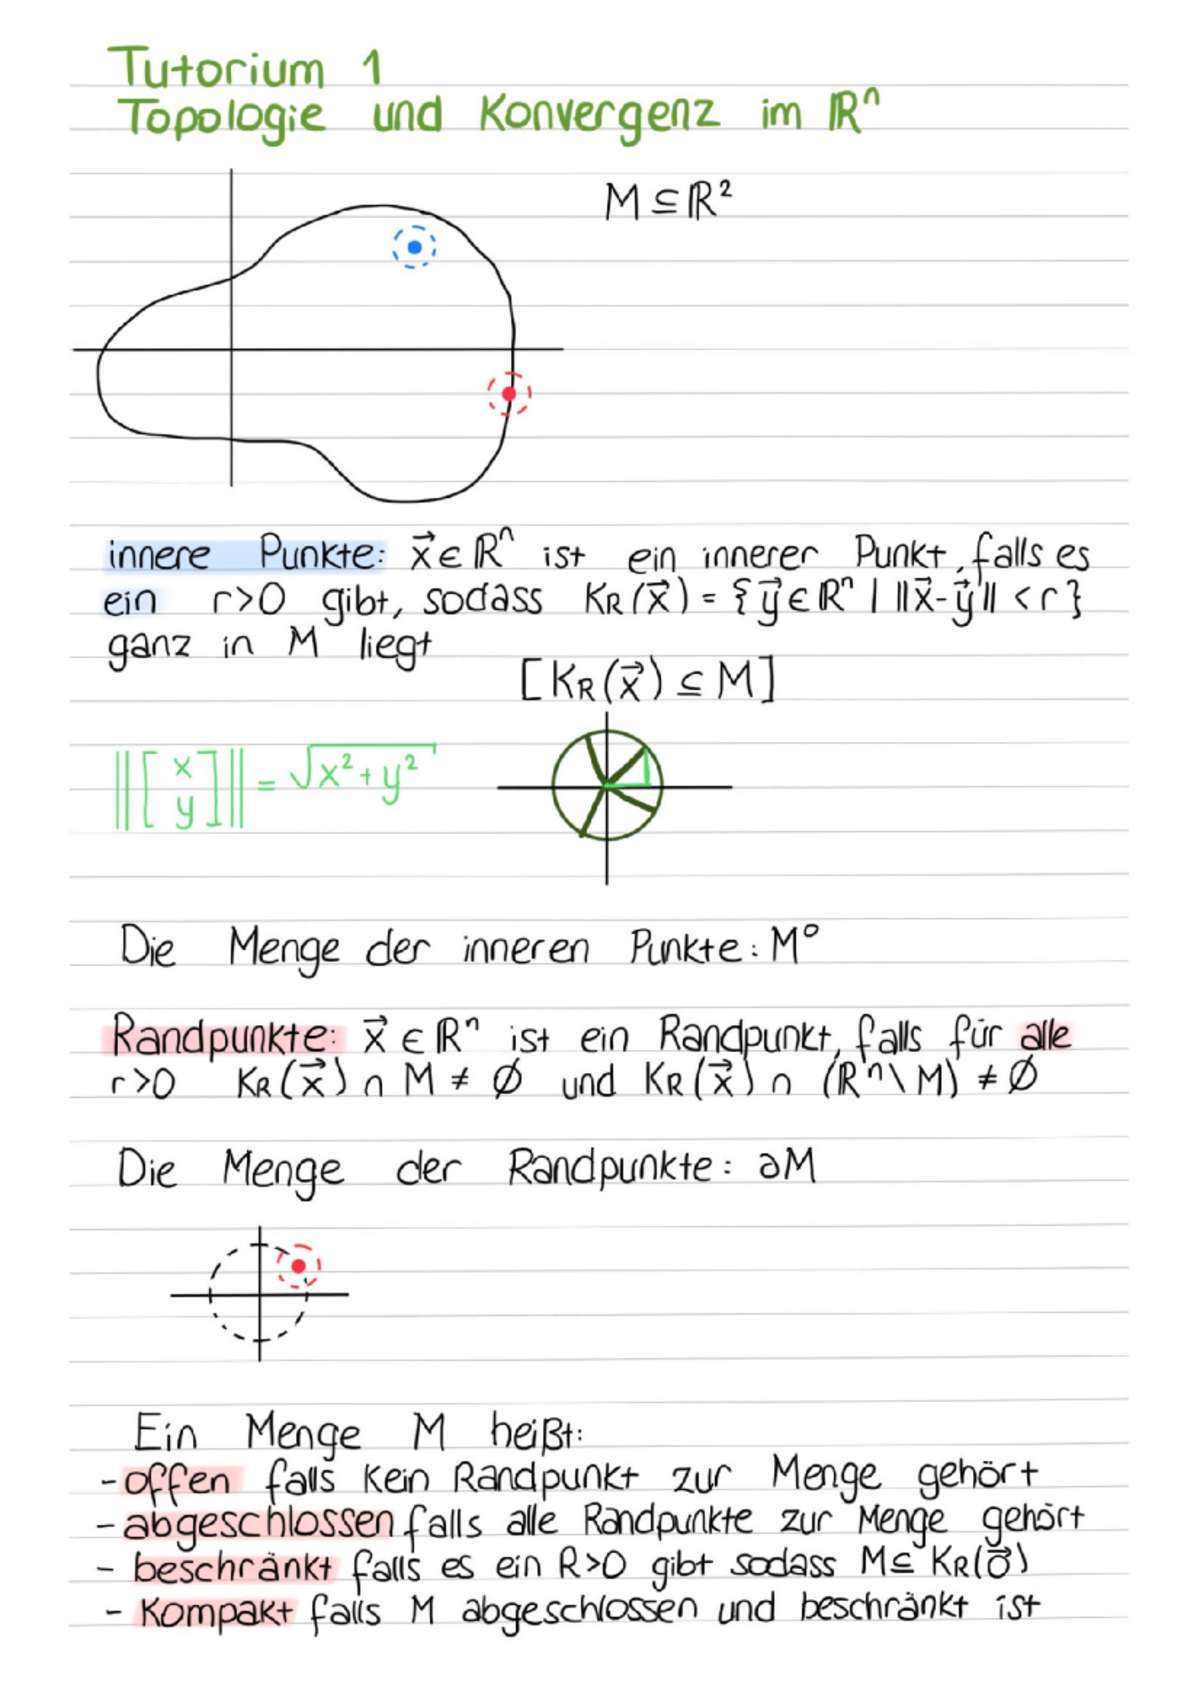 Tutorium 1
Topologie und Konvergenz im ℝⁿ
M ⊆ ℝ²
innere Punkte: x⃗ ∈ ℝⁿ ist ein innerer Punkt, falls es
ein r>0 gibt, sodass KR(x⃗) = {y⃗ ∈ ℝⁿ | ||x⃗-y⃗|| < r}
ganz in M liegt
[KR(x⃗) ⊆ M]
||[x y]|| = √x²+y²
Die Menge der inneren Punkte: M°
Randpunkte: x⃗ ∈ ℝⁿ ist ein Randpunkt, falls für alle
r>0 KR(x⃗) ∩ M ≠ ∅ und KR(x⃗) ∩ (ℝⁿ\M) ≠ ∅
Die Menge der Randpunkte: ∂M
Ein Menge M heißt:
- offen falls kein Randpunkt zur Menge gehört
- abgeschlossen falls alle Randpunkte zur Menge gehört
- beschränkt falls es ein R>0 gibt sodass M ⊆ KR(0⃗)
- Kompakt falls M abgeschlossen und beschränkt ist